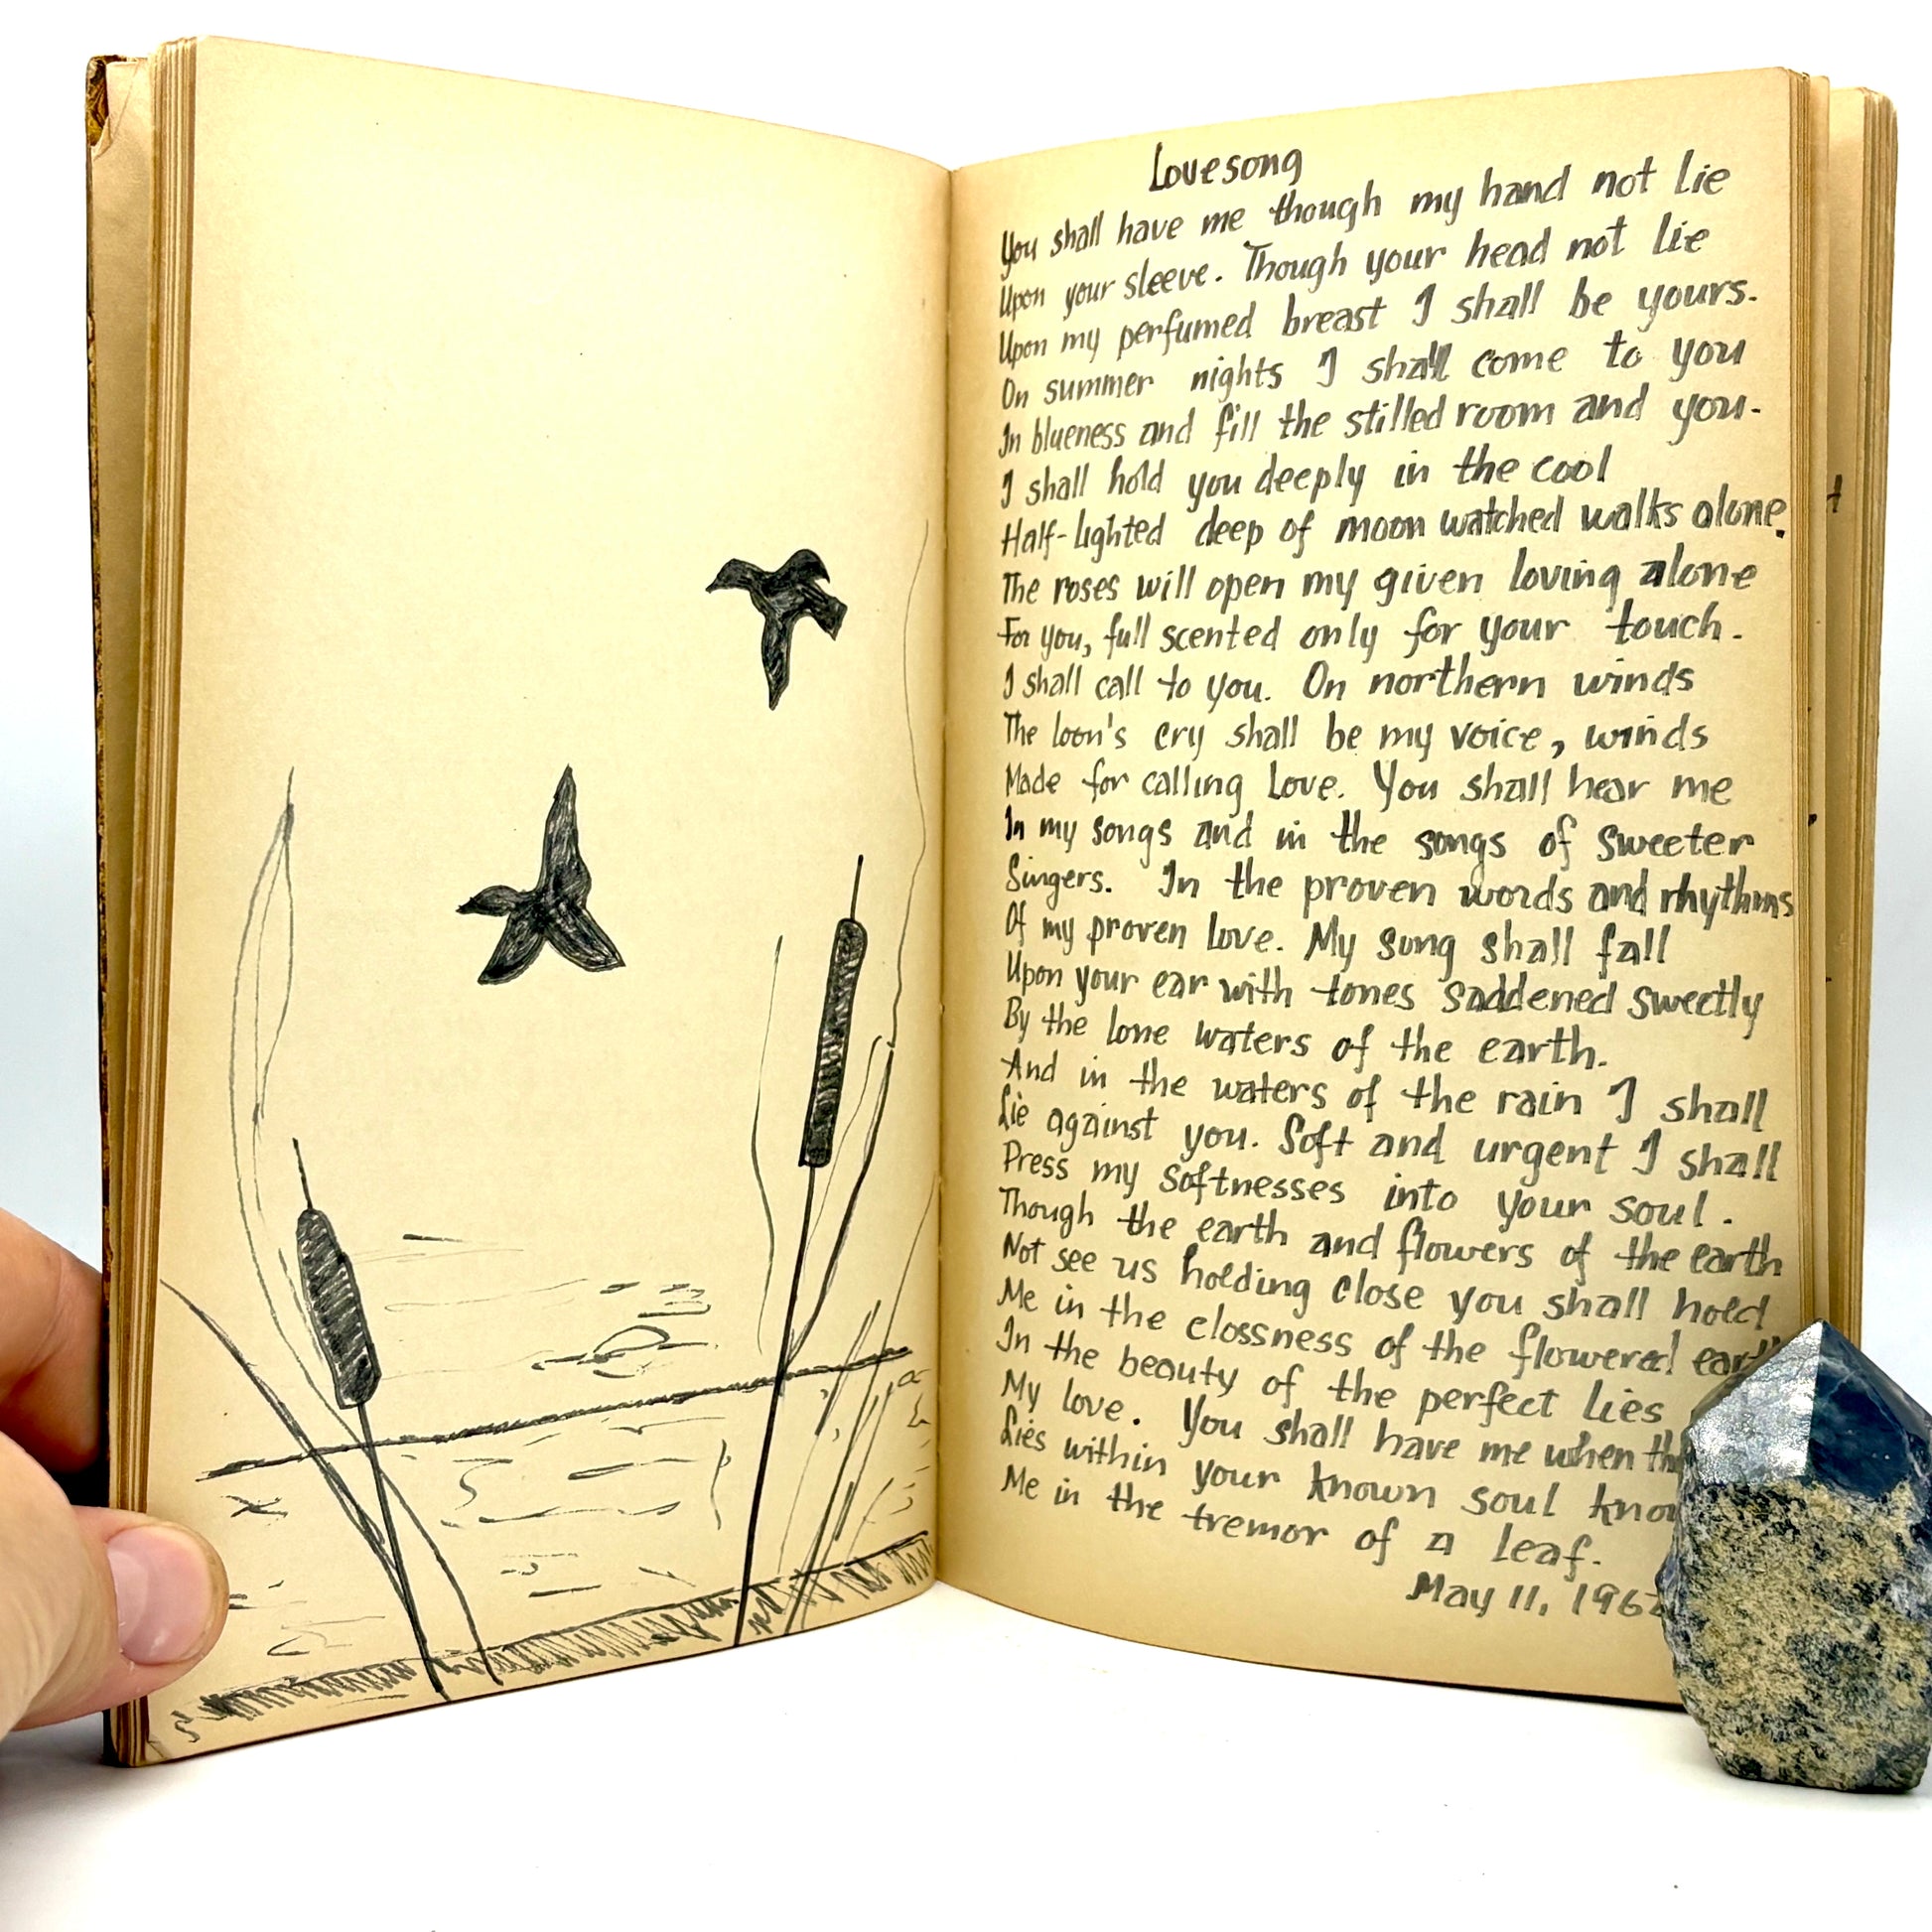 Lovesong
You shall have me though my hand not lie
Upon your sleeve. Though your head not lie
Upon my perfumed breast I shall be yours.
On summer nights I shall come to you
In blueness and fill the stilled room and you.
I shall hold you deeply in the cool
Half-lighted deep of moon watched walks alone.
The roses will open my given loving alone
For you, full scented only for your touch.
I shall call to you. On northern winds
The loon's cry shall be my voice, winds
Made for calling love. You shall hear me
In my songs and in the songs of sweeter
Singers. In the proven words and rhythms
Of my proven love. My song shall fall
Upon your ear with tones saddened sweetly
By the lone waters of the earth.
And in the waters of the rain I shall
Lie against you. Soft and urgent I shall
Press my softnesses into your soul.
Though the earth and flowers of the earth
Not see us holding close you shall hold
Me in the clossness of the flowered
In the beauty of the perfect lies
My love. You shall have me when
Lies within your known soul
Me in the tremor of a leaf.
May 11,